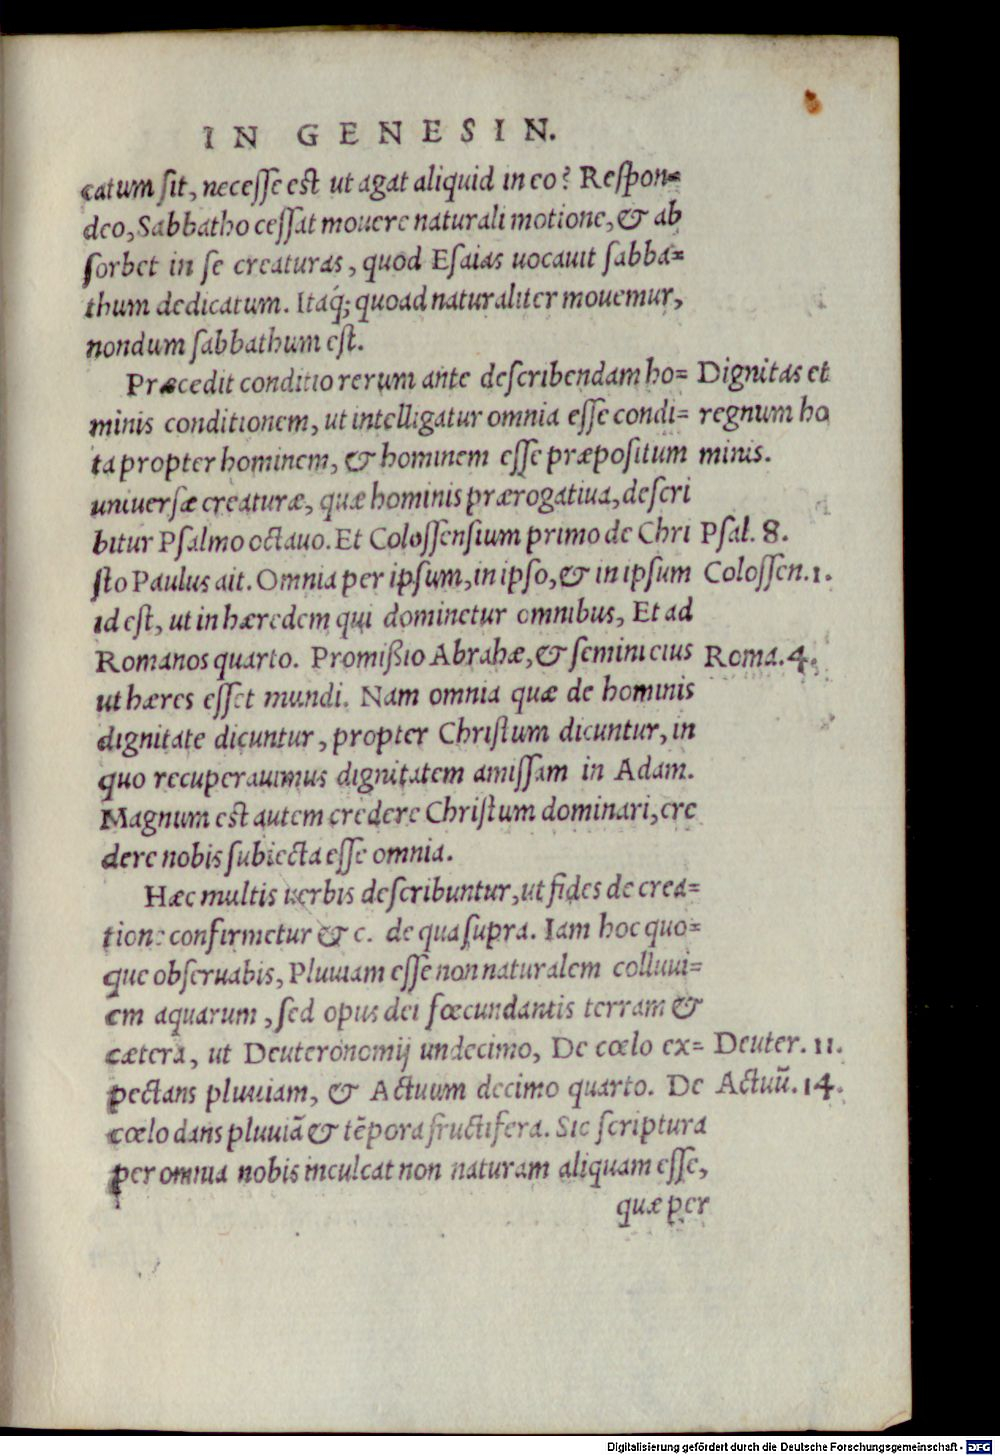 IN GENESIN.
catum sit, necesse est ut agat aliquid in eo? Respon=
deo, Sabbatho cessat mouere naturali motione, & ab
sorbet in se creaturas, quod Esaias uocauit sabba=
thum dedicatum. Itaq́; quoad naturaliter mouemur,
nondum sabbathum est.
Præcedit conditio rerum ante describendam ho= Dignitas et
minis conditionem, ut intelligatur omnia esse condi= regnum ho
ta propter hominem, & hominem esse præpositum minis.
uniuersæ creaturæ, quæ hominis prærogatiua, descri
bitur Psalmo octauo. Et Colossensium primo de Chri Psal. 8.
sto Paulus ait. Omnia per ipsum, in ipso, & in ipsum Colossen. 1.
id est, ut in hæredem qui dominetur omnibus, Et ad
Romanos quarto. Promißio Abrahæ, & semini eius Roma. 4.
ut hæres esset mundi. Nam omnia quæ de hominis
dignitate dicuntur, propter Christum dicuntur, in
quo recuperauimus dignitatem amissam in Adam.
Magnum est autem credere Christum dominari, cre
dere nobis subiecta esse omnia.
Hæc multis uerbis describuntur, ut fides de crea=
tione confirmetur & c. de qua supra. Iam hoc quo=
que obseruabis, Pluuiam esse non naturalem colluui=
em aquarum, sed opus dei fœcundantis terram &
cætera, ut Deuteronomij undecimo, De cœlo ex= Deuter. 11.
pectans pluuiam, & Actuum decimo quarto. De Actuũ. 14.
cœlo dans pluuiã & tẽpora fructifera. Sic scriptura
per omnia nobis inculcat non naturam aliquam esse,
quæ per
Digitalisierung gefördert durch die Deutsche Forschungsgemeinschaft - DFG